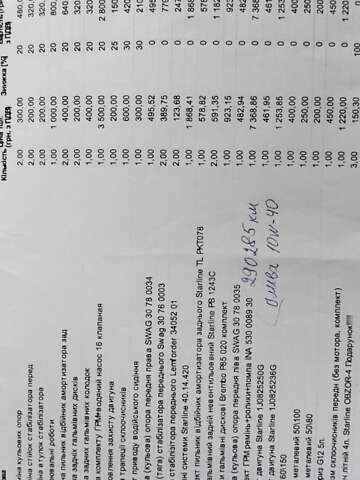 Кількість (грн. з ПДВ) Знижка [%]
іна кульових опор 2,00 300,00 20 480,0
іна стійок стабілізатора перед 2,00 200,00 20 320,
іна втулок стабілізатора 2,00 200,00 20 320,
ювальні роботи 1,00 1 000,00 20 800
а пильних відбійник амортизатора зад 2,00 400,00 20 640
а задніх гальмівних дисків 2,00 200,00 20 320
а задніх гальмівних колодок 1,00 400,00 20 320
комплекту ГРМ+помпа 16 клапаная 1,00 3 500,00 20 2 800
овлення захисту двигуна 1,00 200,00 25 150
трапеції склоочисників 1,00 600,00 30 420
приводу водійського сидіння 1,00 300,00 30 210
а (кульова) опора передня права SWAG 30 78 0034 1,00 495,52 495
(тяга) стабілізатора переднього Swag 30 76 0003 2,00 389,75 770
стабілізатора переднього Lemforder 34052 01 2,00 123,68 247
ні системи Starline 40.14.420 1,00 1 868,41 1 868
пильних відбійник амортизатора заднього Starline TL PKT078 1,00 578,82 578
гальмівний задній невентильований Starline PB 1243C 2,00 591,35 1 182
гальмівні дискові Brembo P85 020 комплект 1,00 923,15 923
а (кульова) опора передня ліва SWAG 30 78 0035 1,00 482,94 482
ГРМ ремінь+ролики+помпа INA 530 0089 30 1,00 7 368,86 7 368
290285 км
двигуна Starline 1,00825250G 1,00 461,95 461
Олива 10W-40
двигуна Starline 1,00825236G 1,00 1 253,85 1 253
60\150 1,00 400,00 400
металевий 50\100 1,00 250,00 250
металевий 50\80 1,00 200,00 200
G12 5л. 1,00 450,00 450
склоочисників передн (без мотора, комплект) 1,00 1 220,00 1 220
літній 4л. Starline OBZOR-4 Подарунок!!!!! 3,00 150,30 100